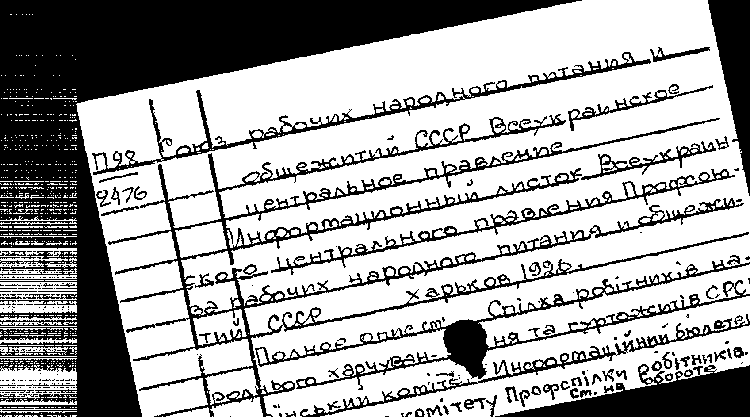 П98
2476
Союз рабочих народного питания и
общежитий СССР Всеукраинское
центральное правление
Информационный листок Всеукраин-
ского центрального правления Профсою-
за рабочих народного питания и общежи-
тий СССР Харьков, 1926.
Полное опис. ст. Спілка робітників на-
роднього харчуван- ня та гуртожитів СРСР
Інформаційний бюлетень
комітету Профспілки робітників.
см. на обороте